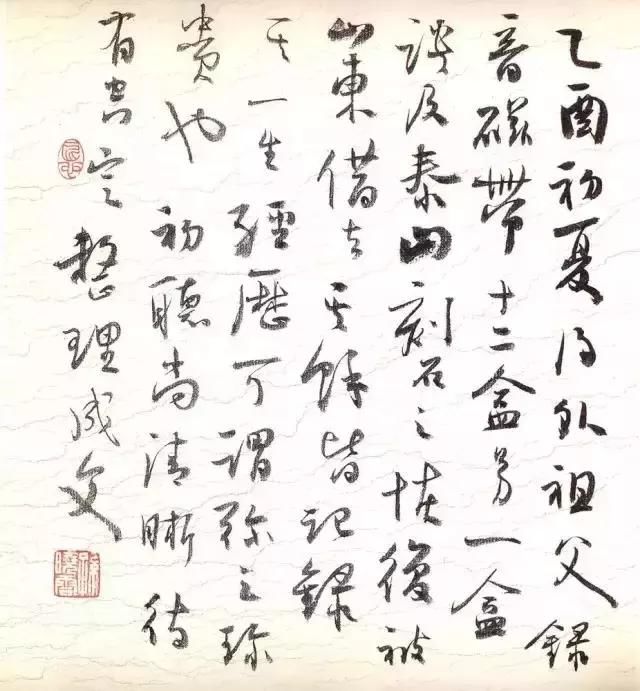 乙酉初夏得外祖父録
音磁帶十二盒另一盒
談及泰山刻石之恢復被
山東借去其餘皆記録
其一生經歷可謂弥足珍
貴也 初聽尚清晰待
有空定整理成文